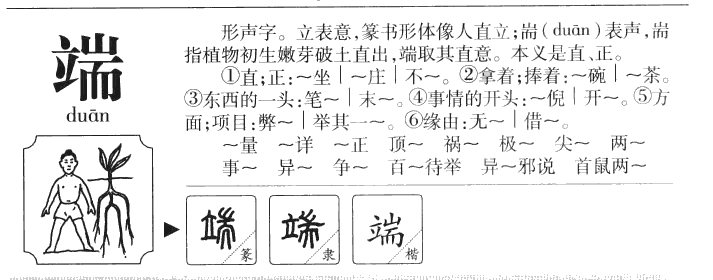 端
duān
形声字。立表意,篆书形体像人直立;耑(duān)表声,耑
指植物初生嫩芽破土直出,端取其直意。本义是直、正。
①直;正:~坐|~庄|不~。②拿着;捧着:~碗|~茶。
③东西的一头:笔~|末~。④事情的开头:~倪|开~。⑤方
面;项目:弊~|举其一~。⑥缘由:无~|借~。
~量 ~详 ~正 顶~ 祸~ 极~ 尖~ 两~
事~ 异~ 争~ 百~待举 异~邪说 首鼠两~
端 篆 端 隶 端 楷